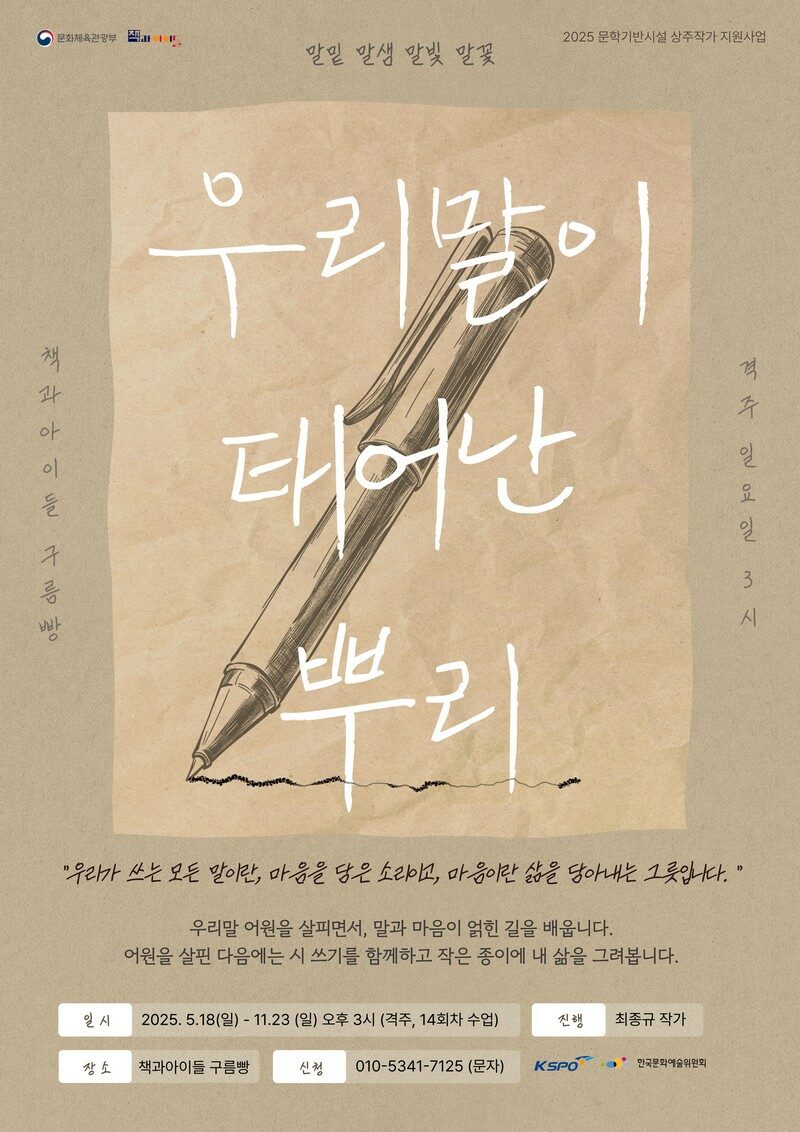 문화체육관광부
책과아이들
2025 문학기반시설 상주작가 지원사업
말밑 말샘 말빛 말꽃
우리말이
태어난
뿌리
책과아이들 구름빵
격주 일요일 3시
"우리가 쓰는 모든 말이란, 마음을 담은 소리이고, 마음이란 삶을 담아내는 그릇입니다."
우리말 어원을 살피면서, 말과 마음이 얽힌 길을 배웁니다.
어원을 살핀 다음에는 시 쓰기를 함께하고 작은 종이에 내 삶을 그려봅니다.
일시 2025. 5.18(일) - 11.23 (일) 오후 3시 (격주, 14회차 수업)
진행 최종규 작가
장소 책과아이들 구름빵
신청 010-5341-7125 (문자)
KSPO
한국문화예술위원회